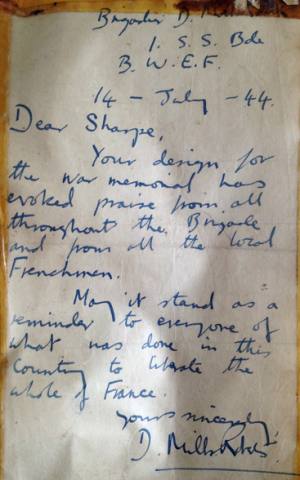 Brigadier D. Mills
1. S. S. Bde
B. W. E. F.
14 - July - 44.
Dear Sharpe,
Your design for
the war memorial has
evoked praise from all
throughout the Brigade
and from all the local
Frenchmen.
May it stand as a
reminder to everyone of
what was done in this
Country to the
whole of France.
Yours sincerely,
D. Mills Roberts